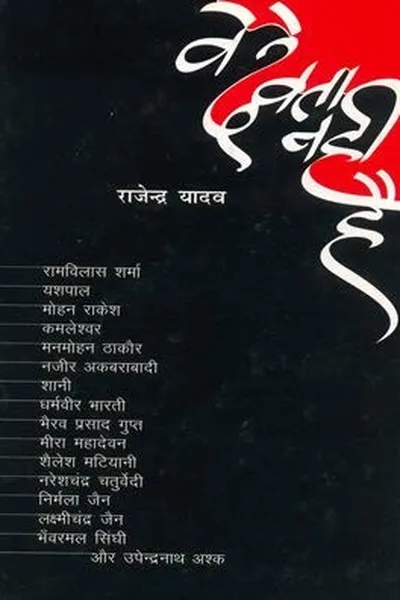 वे
देवता
नहीं
हैं
राजेन्द्र यादव
रामविलास शर्मा
यशपाल
मोहन राकेश
कमलेश्वर
मनमोहन ठाकौर
नजीर अकबराबादी
शानी
धर्मवीर भारती
भैरव प्रसाद गुप्त
मीरा महादेवन
शैलेश मटियानी
नरेशचंद्र चतुर्वेदी
निर्मला जैन
लक्ष्मीचंद्र जैन
भँवरमल सिंघी
और उपेन्द्रनाथ अश्क